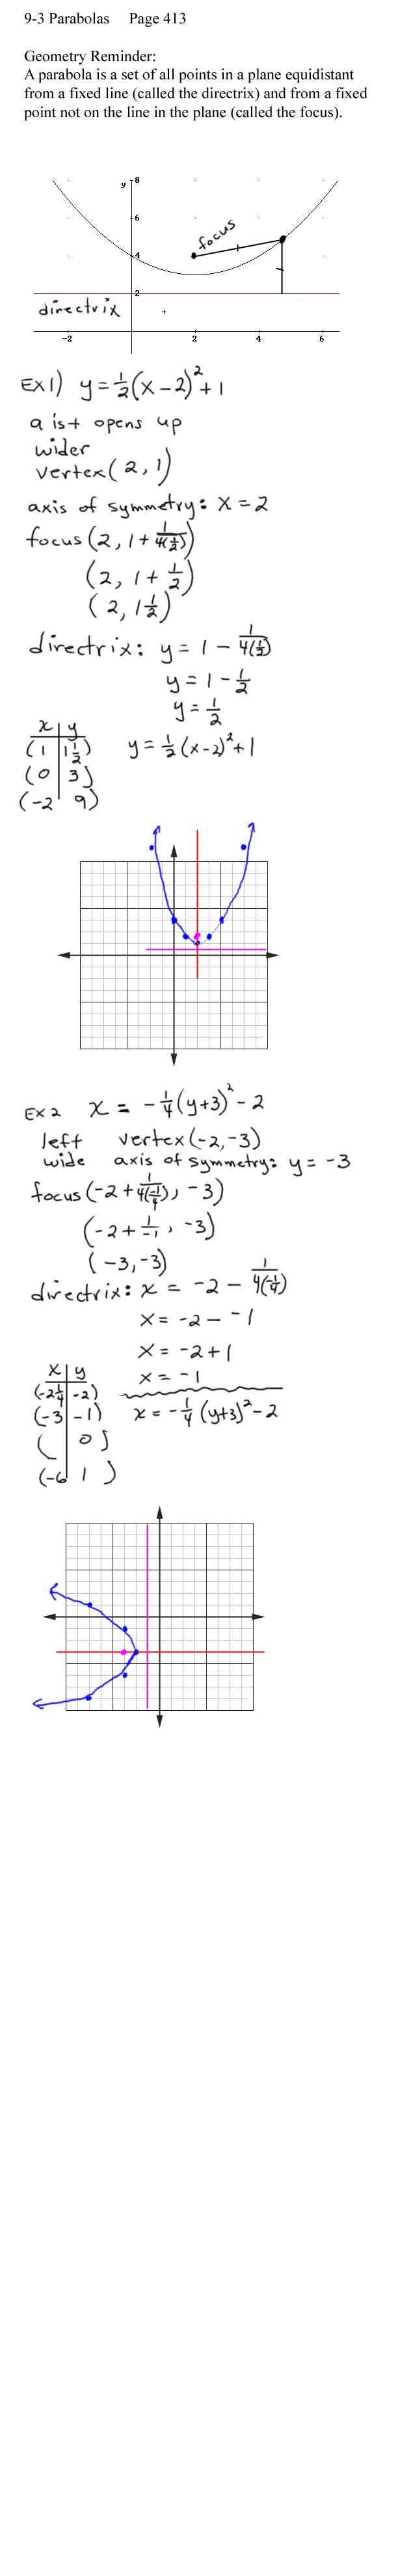 9-3 Parabolas Page 413
Geometry Reminder:
A parabola is a set of all points in a plane equidistant
from a fixed line (called the directrix) and from a fixed
point not on the line in the plane (called the focus).
y 8
6
focus
4
2
directrix
-2 2 4 6
EX 1) y = 1/2(x - 2)² + 1
a is + opens up
wider
vertex (2, 1)
axis of symmetry: x = 2
focus (2, 1 + 1/4(1/2))
(2, 1 + 1/2)
(2, 1 1/2)
directrix: y = 1 - 1/4(1/2)
y = 1 - 1/2
y = 1/2
x | y
(1 | 1 1/2) y = 1/2 (x - 2)² + 1
(0 | 3)
(-2 | 9)
EX 2 x = -1/4(y+3)² - 2
left vertex (-2, -3)
wide axis of symmetry: y = -3
focus (-2 + 1/4(-1/4), -3)
(-2 + 1/-1, -3)
(-3, -3)
directrix: x = -2 - 1/4(-1/4)
x = -2 - -1
x = -2 + 1
x = -1
x | y
(-2 1/4 | -2)
(-3 | -1) x = -1/4 (y+3)² - 2
( | 0)
(-6 | 1)